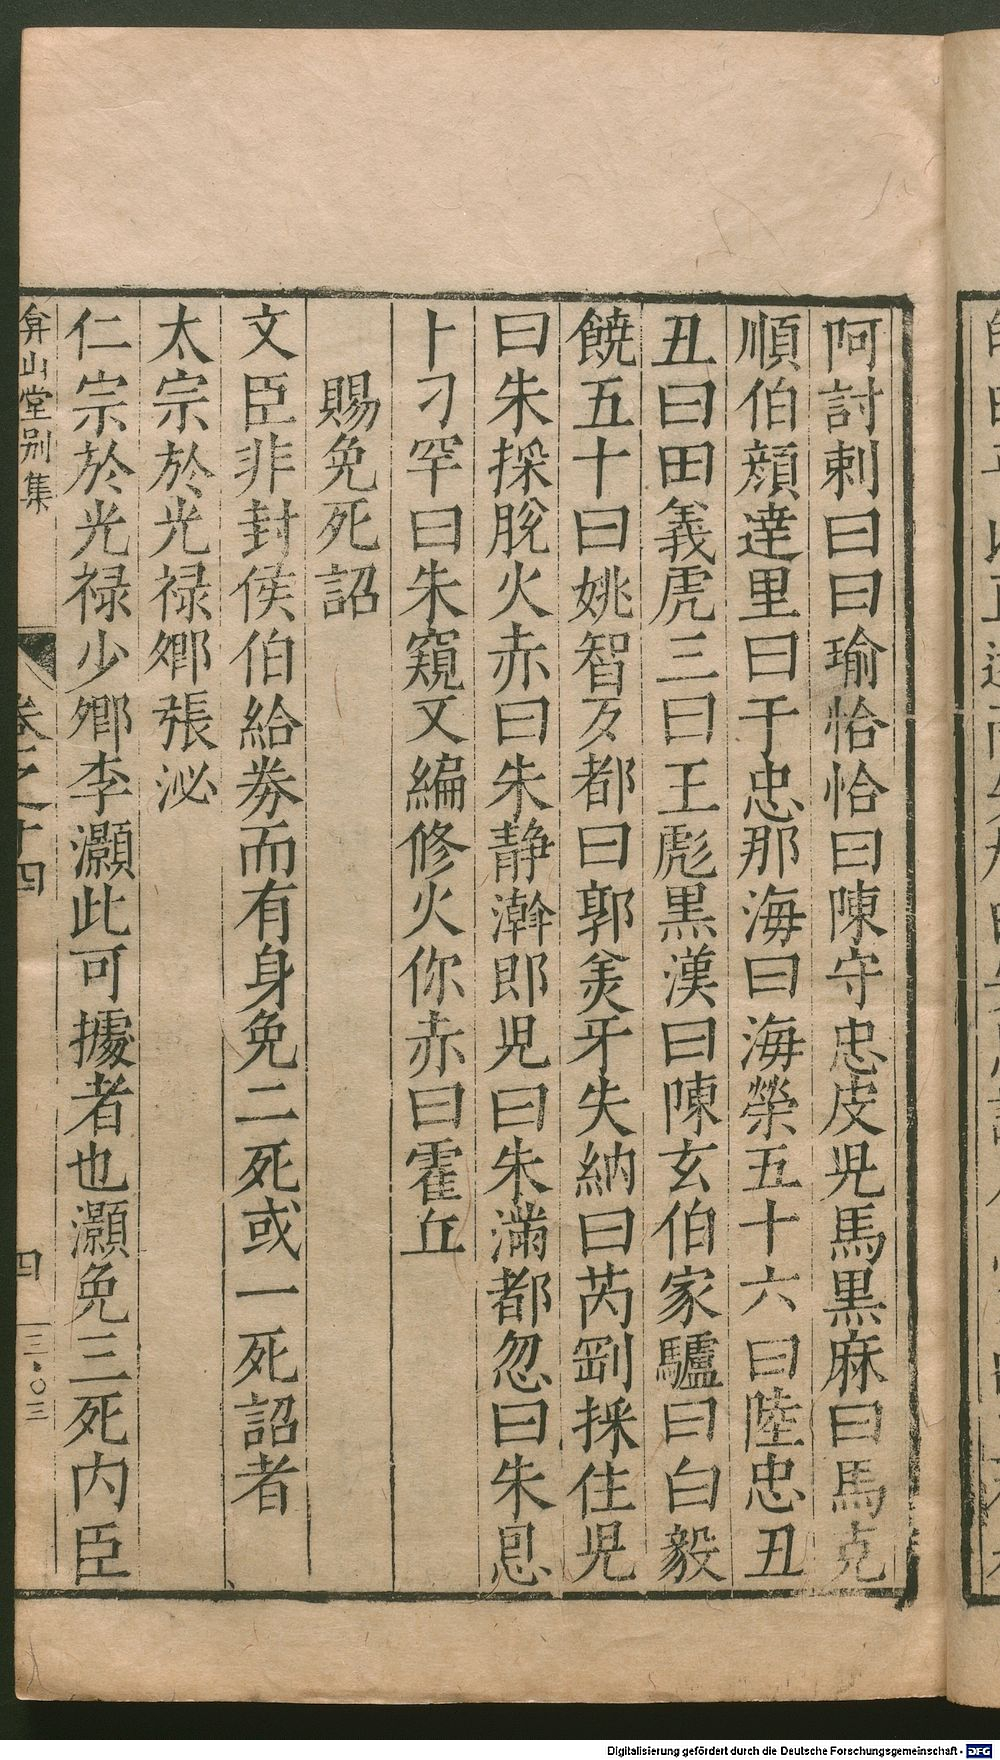 阿討剌曰曰瑜恰恰曰陳守忠皮児馬黒麻曰馬克
順伯顔達里曰于忠那海曰海榮五十六曰陸忠丑
丑曰田義虎三曰王彪黒漢曰陳玄伯家驢曰白毅
饒五十曰姚智歹都曰郭羙牙失納曰芮劉採住児
曰朱採脫火赤曰朱静瀚郎児曰朱滿都忽曰朱恩
卜刁罕曰朱窺又編修火你赤曰霍丘
賜免死詔
文臣非封侯伯給劵而有身免二死或一死詔者
太宗於光禄郷張泌
仁宗於光禄少郷李灝此可據者也灝免三死内臣
弇山堂别集
卷之十四
四
三・〇三
Digitalisierung gefördert durch die Deutsche Forschungsgemeinschaft - DFG